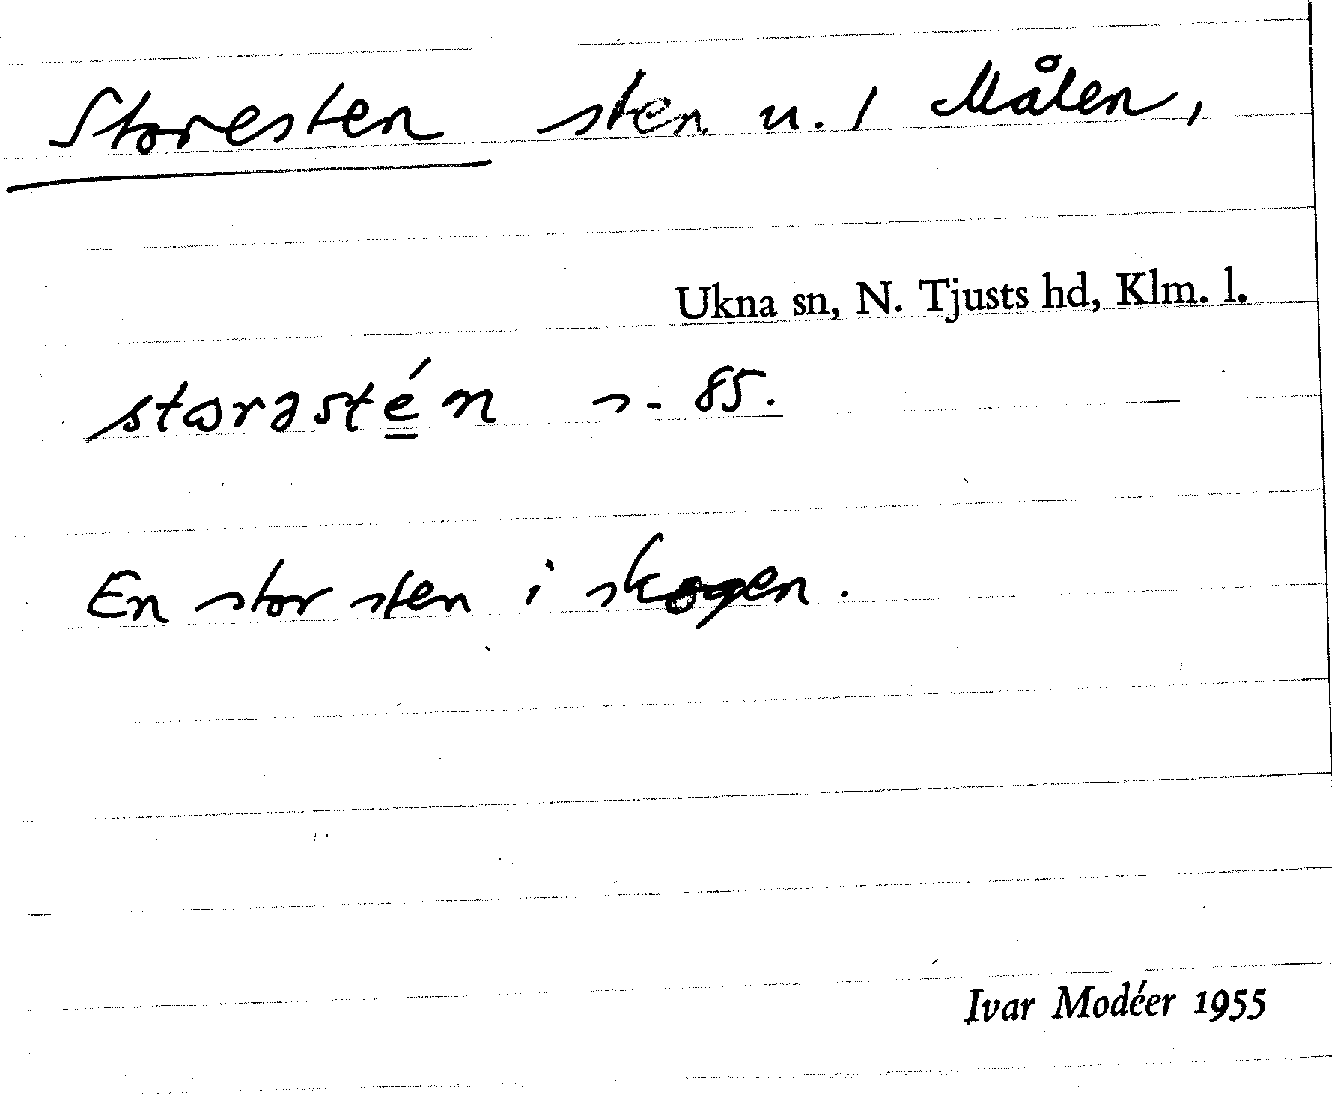 Storesten sten u. 1 Målen,
Ukna sn, N. Tjusts hd, Klm. l.
storəstén s-85.
En stor sten i skogen.
Ivar Modéer 1955